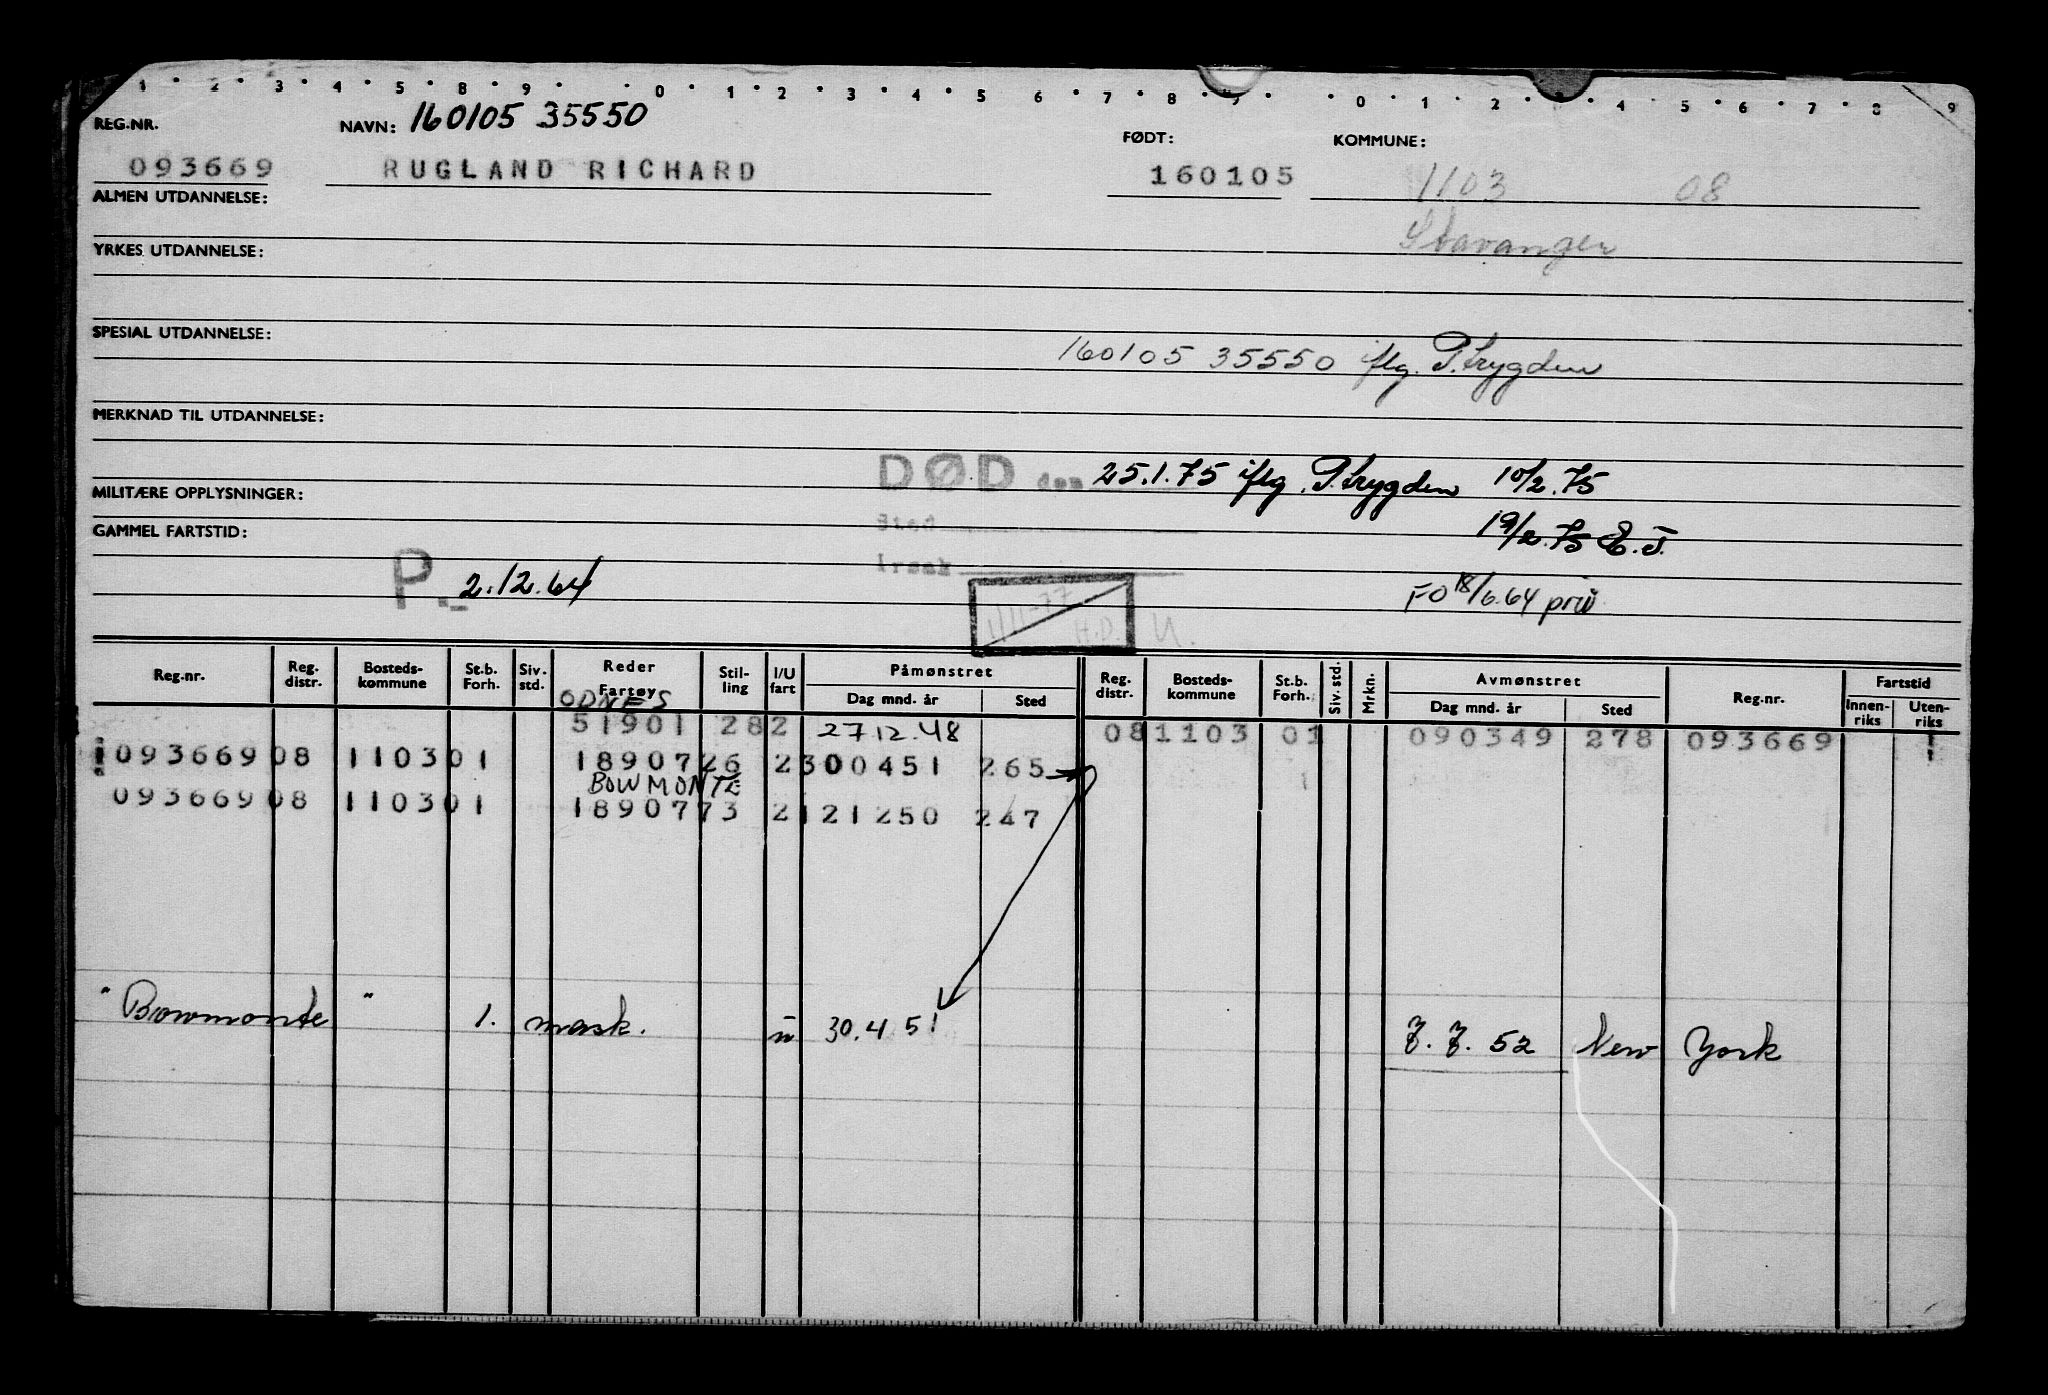 1 2 3 4 5 8 9 0 1 2 3 4 5 6 7 8 9 0 1 2 3 4 5 6 7 8 9
REG.NR. NAVN: 160105 35550 FØDT: KOMMUNE:
093669 RUGLAND RICHARD 160105 1103 08
ALMEN UTDANNELSE: Stavanger
YRKES UTDANNELSE:
SPESIAL UTDANNELSE:
160105 35550 iflg. P.trygden
MERKNAD TIL UTDANNELSE:
DØD den 25.1.75 iflg. P.trygden 10/2.75
MILITÆRE OPPLYSNINGER:
Sted 19/2.75 E.T.
GAMMEL FARTSTID:
Årsak
P.- 2.12.64 FO 18/6.64 priv
1/11-77 H.D. U.
Reg.nr. Reg. distr. Bosteds- kommune St.b. Forh. Siv. std. Reder Fartøy Stil- ling I/U fart Påmønstret Dag mnd. år Sted Reg. distr. Bosteds- kommune St.b. Forh. Siv. std. Mrkn. Avmønstret Dag mnd. år Sted Reg.nr. Fartstid Innen- riks Uten- riks
ODNES
51901 282 27 12.48 081103 01 090349 278 093669
093669 08 1103 01 18907 26 2 300451 265
BOWMONTE
093669 08 1103 01 18907 73 2 121250 247
"Bowmonte" 1. mask. u 30.4 51 7.7.52 New York